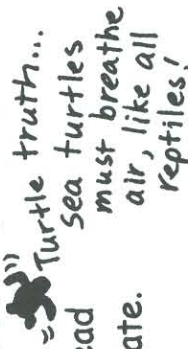 Turtle truth...
sea turtles
must breathe
air, like all
reptiles!
ead
ate.